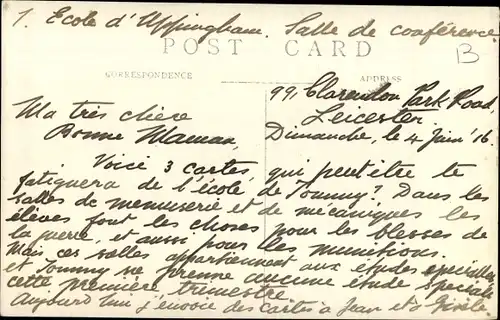 1. Ecole d'Uppingham. Salle de conférence.
POST CARD
B
CORRESPONDENCE
ADDRESS
99, Clarendon Park Road
Leicester
Ma très chère
Bonne Maman,
Dimanche, le 4 Juin '16.
Voici 3 cartes, qui peut être te
fatiguera de l'école de Tommy? Dans les
salles de menuserie et de mécaniques les
élèves font les choses pour les blesses de
la guerre, et aussi pour les munitions.
Mais ces salles appartiennent aux études speciales
et Tommy ne prenne aucune étude speciale
cette première trimestre.
Aujourd'hui j'envoie des cartes à Jean et à Gisèle.